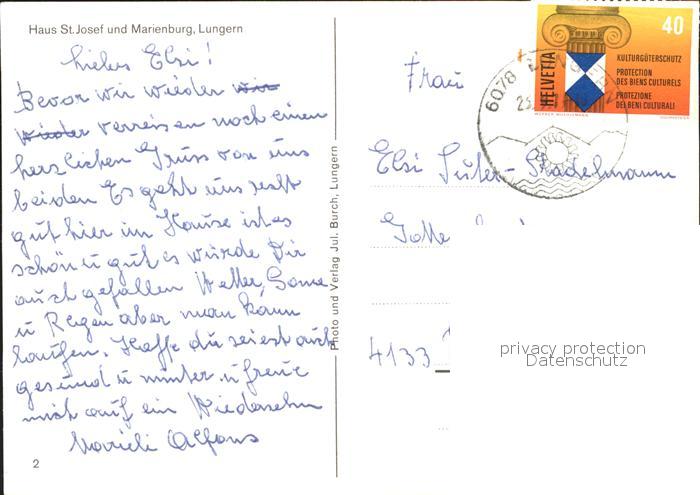 Haus St. Josef und Marienburg, Lungern
Liebes Elsi!
Bevor wir wieder wir
wieder verreisen noch einen
herzlichen Gruss von uns
beiden Es geht uns recht
gut hier im Hause ist es
schön u gut es würde Dir
auch gefallen Wetter, Sonne
u Regen aber man kann
laufen. Hoffe du seiest auch
gesund u munter u freue
mich auf ein Wiedersehn
Marieli Alfons
2
Photo und Verlag Jul. Burch, Lungern
40
HELVETIA
KULTURGÜTERSCHUTZ
PROTECTION
DES BIENS CULTURELS
PROTEZIONE
DEI BENI CULTURALI
6078
Frau
Elsi Suter-Stadelmann
4133
privacy protection
Datenschutz